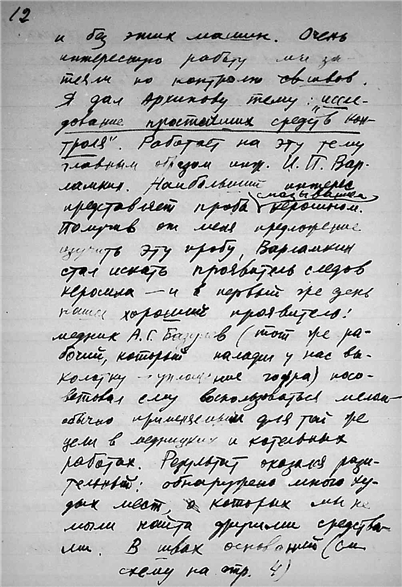 12
и без этих машин. Очень
интересную работу мы за-
теяли по контролю свивов.
Я дал Архипову тему: "иссле-
дование простейших средств кон-
троля". Работает на эту тему
главным обзом инж. И. П. Вар-
ламкин. Наибольший интерес
представляет проба смазывания керосином.
Получив от меня предложение
изучить эту пробу, Варламкин
стал искать проявитель следов
керосина — и в первый же день
нашел хороший проявитель:
медник А. Г. (тот же ра-
бочий, который наладил у нас вы-
колотку ) посо-
ветовал ему воспользоваться мелом
обычно применяемым для той же
цели в медницких и котельных
работах. Результат оказался рази-
тельный: обнаружено много ху-
дых мест, о которых мы не
могли найти другими средства-
ми. В швах оснований (см
схему на стр. 4)